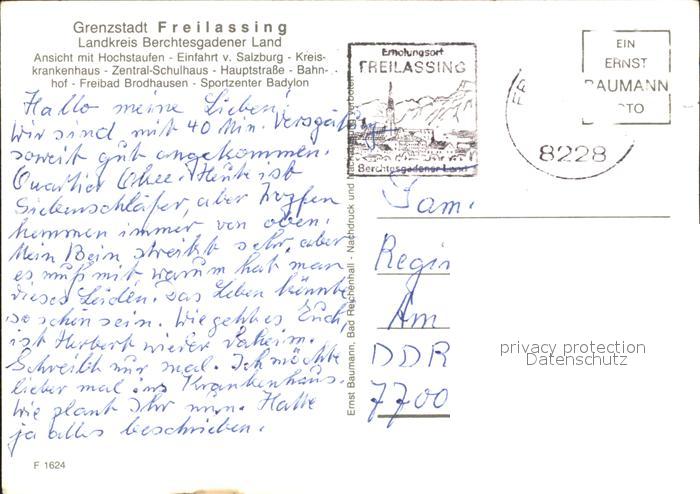 Grenzstadt Freilassing
Landkreis Berchtesgadener Land
Ansicht mit Hochstaufen - Einfahrt v. Salzburg - Kreis-
krankenhaus - Zentral-Schulhaus - Hauptstraße - Bahn-
hof - Freibad Brodhausen - Sportzenter Badylon
Hallo meine Lieben!
Wir sind mit 40 Min. Verspätung
soweit gut angekommen.
Quartier Heute ist
Siebenschläfer, aber Tropfen
kommen immer von oben.
Mein Bein streikt sehr, aber
es muß mit warum hat man
dieses Leiden. Das Leben könnte
so schön sein. Wie geht es Euch,
ist Herbert wieder daheim.
Schreibt nur mal. Ich möchte
lieber mal ins Krankenhaus.
Wie plant Ihr nun. Hatte
ja alles beschrieben.
F 1624
Ernst Baumann, Bad Reichenhall - Nachdruck und
Erholungsort
FREILASSING
Berchtesgadener Land
EIN
ERNST
BAUMANN
OTO
FR
8228
Fam.
Regin
Am
DDR
7700
privacy protection
Datenschutz